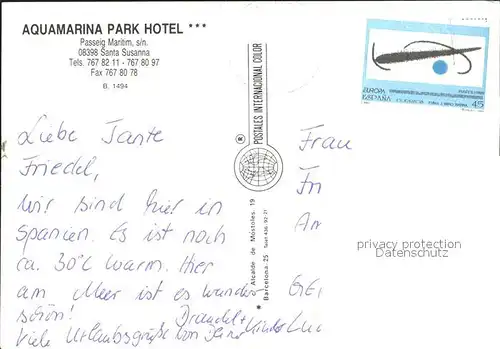 AQUAMARINA PARK HOTEL ***
Passeig Maritim, s/n.
08398 Santa Susanna
Tels. 767 82 11 - 767 80 97
Fax 767 80 78
B. 1494
Liebe Tante
Friedel,
wir sind hier in
Spanien. Es ist noch
ca. 30°C warm. Hier
am Meer ist es wunder-
schön!
Viele Urlaubsgrüße von
Kinder
POSTALES INTERNACIONAL COLOR
®
Alcalde de Móstoles, 19
* Barcelona-25
EUROPA
ESPAÑA
45
Frau
privacy protection
Datenschutz